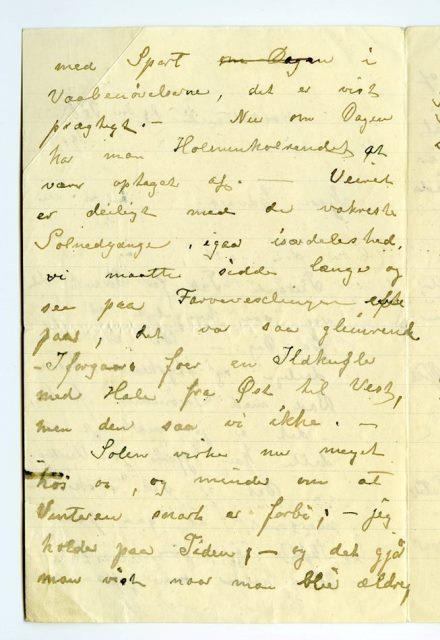 med Sport om Dagen i
Vaabenøvelserne, det er vist
prægtigt. — Nu om Dagen
har man Holmenkolrendet at
være optaget af. — Veiret
er deiligt med de vakreste
Solnedgange, igaar især deleshed.
vi maatte sidde længe og
see paa Farvevexlingen
paa, det var saa glimrende
– Iforgaars foer en Ildkugle
med Hale fra Øst til Vest,
men den saa vi ikke. —
– Solen virker nu meget
hos os, og minder om at
Vinteren snart er forbi; – jeg
holder paa Tiden; – og det gjør
man vist naar man blir ældre,